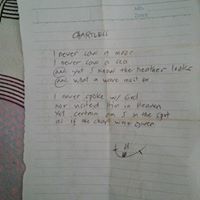 CHARTLESS
I never saw a moor
I never saw a sea
and yet I know the heather looks
and what a wave must be.
I never spoke w/ God
nor visited Him in Heaven
Yet certain am I in the spot
as if the chart were given